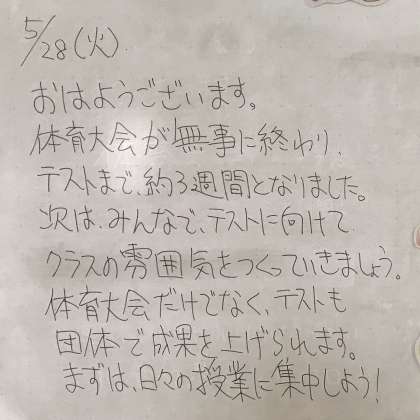 5/28(火)
おはようございます。
体育大会が無事に終わり、
テストまで、約3週間となりました。
次は、みんなで、テストに向けて
クラスの雰囲気をつくっていきましょう。
体育大会だけでなく、テストも
団体で成果を上げられます。
まずは、日々の授業に集中しよう!